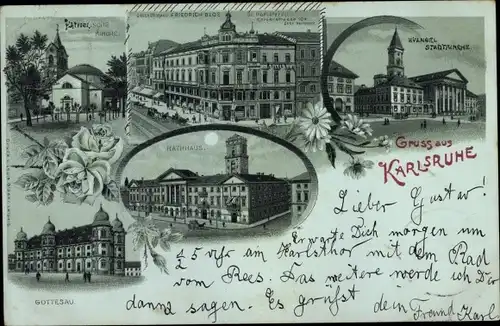 KATHOLISCHE
KIRCHE.
FRIEDRICH BLOS
EVANGEL.
STADTKIRCHE
Gruss aus
KARLSRUHE
RATHHAUS.
GOTTESAU
Lieber Gustav!
Erwarte Dich morgen um
5 Uhr am Karlsthor mit dem Rad
vom Rees. Das weitere werde ich Dir
dann sagen. Es grüßt dein
Freund Karl